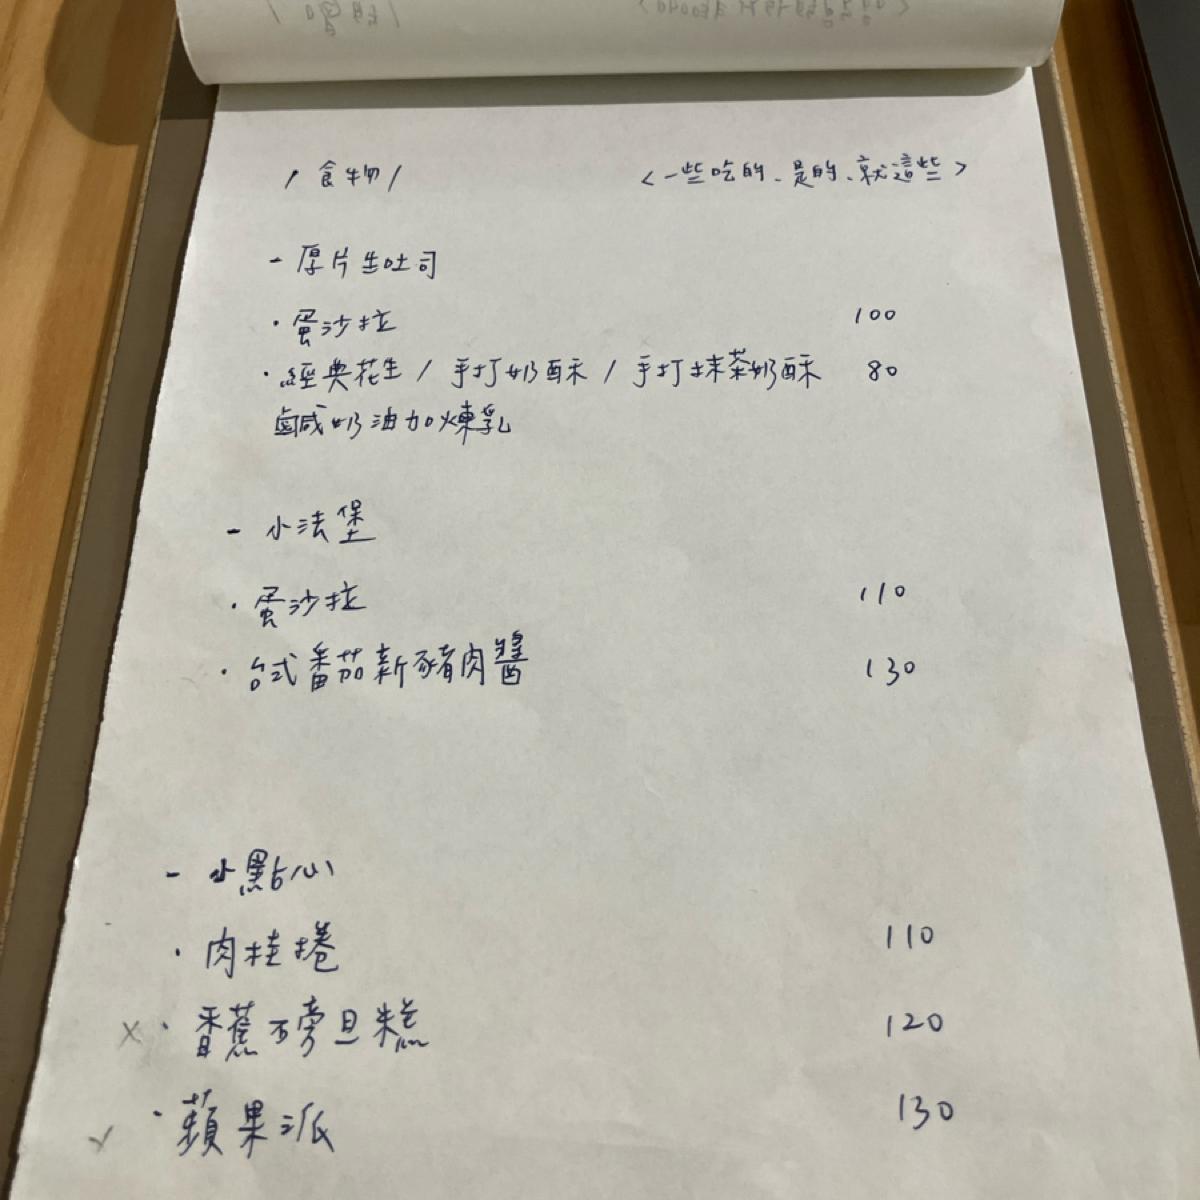 / 食物 /
<一些吃的、是的、就這些>
- 厚片生吐司
· 蛋沙拉 100
· 經典花生 / 手打奶酥 / 手打抹茶奶酥 80
鹹奶油加煉乳
- 小法堡
· 蛋沙拉 110
· 台式番茄新豬肉醬 130
- 小點心
· 肉桂捲 110
x · 香蕉磅旦糕 120
✓ · 蘋果派 130